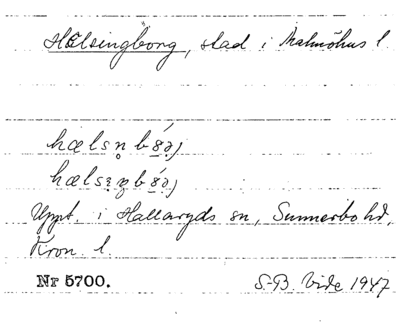 Hälsingborg, stad i Malmöhus l.
Uppt. i Hallaryds sn, Sunnerbo hd,
Kron. l.
Nr 5700. S-B. Vide 1947